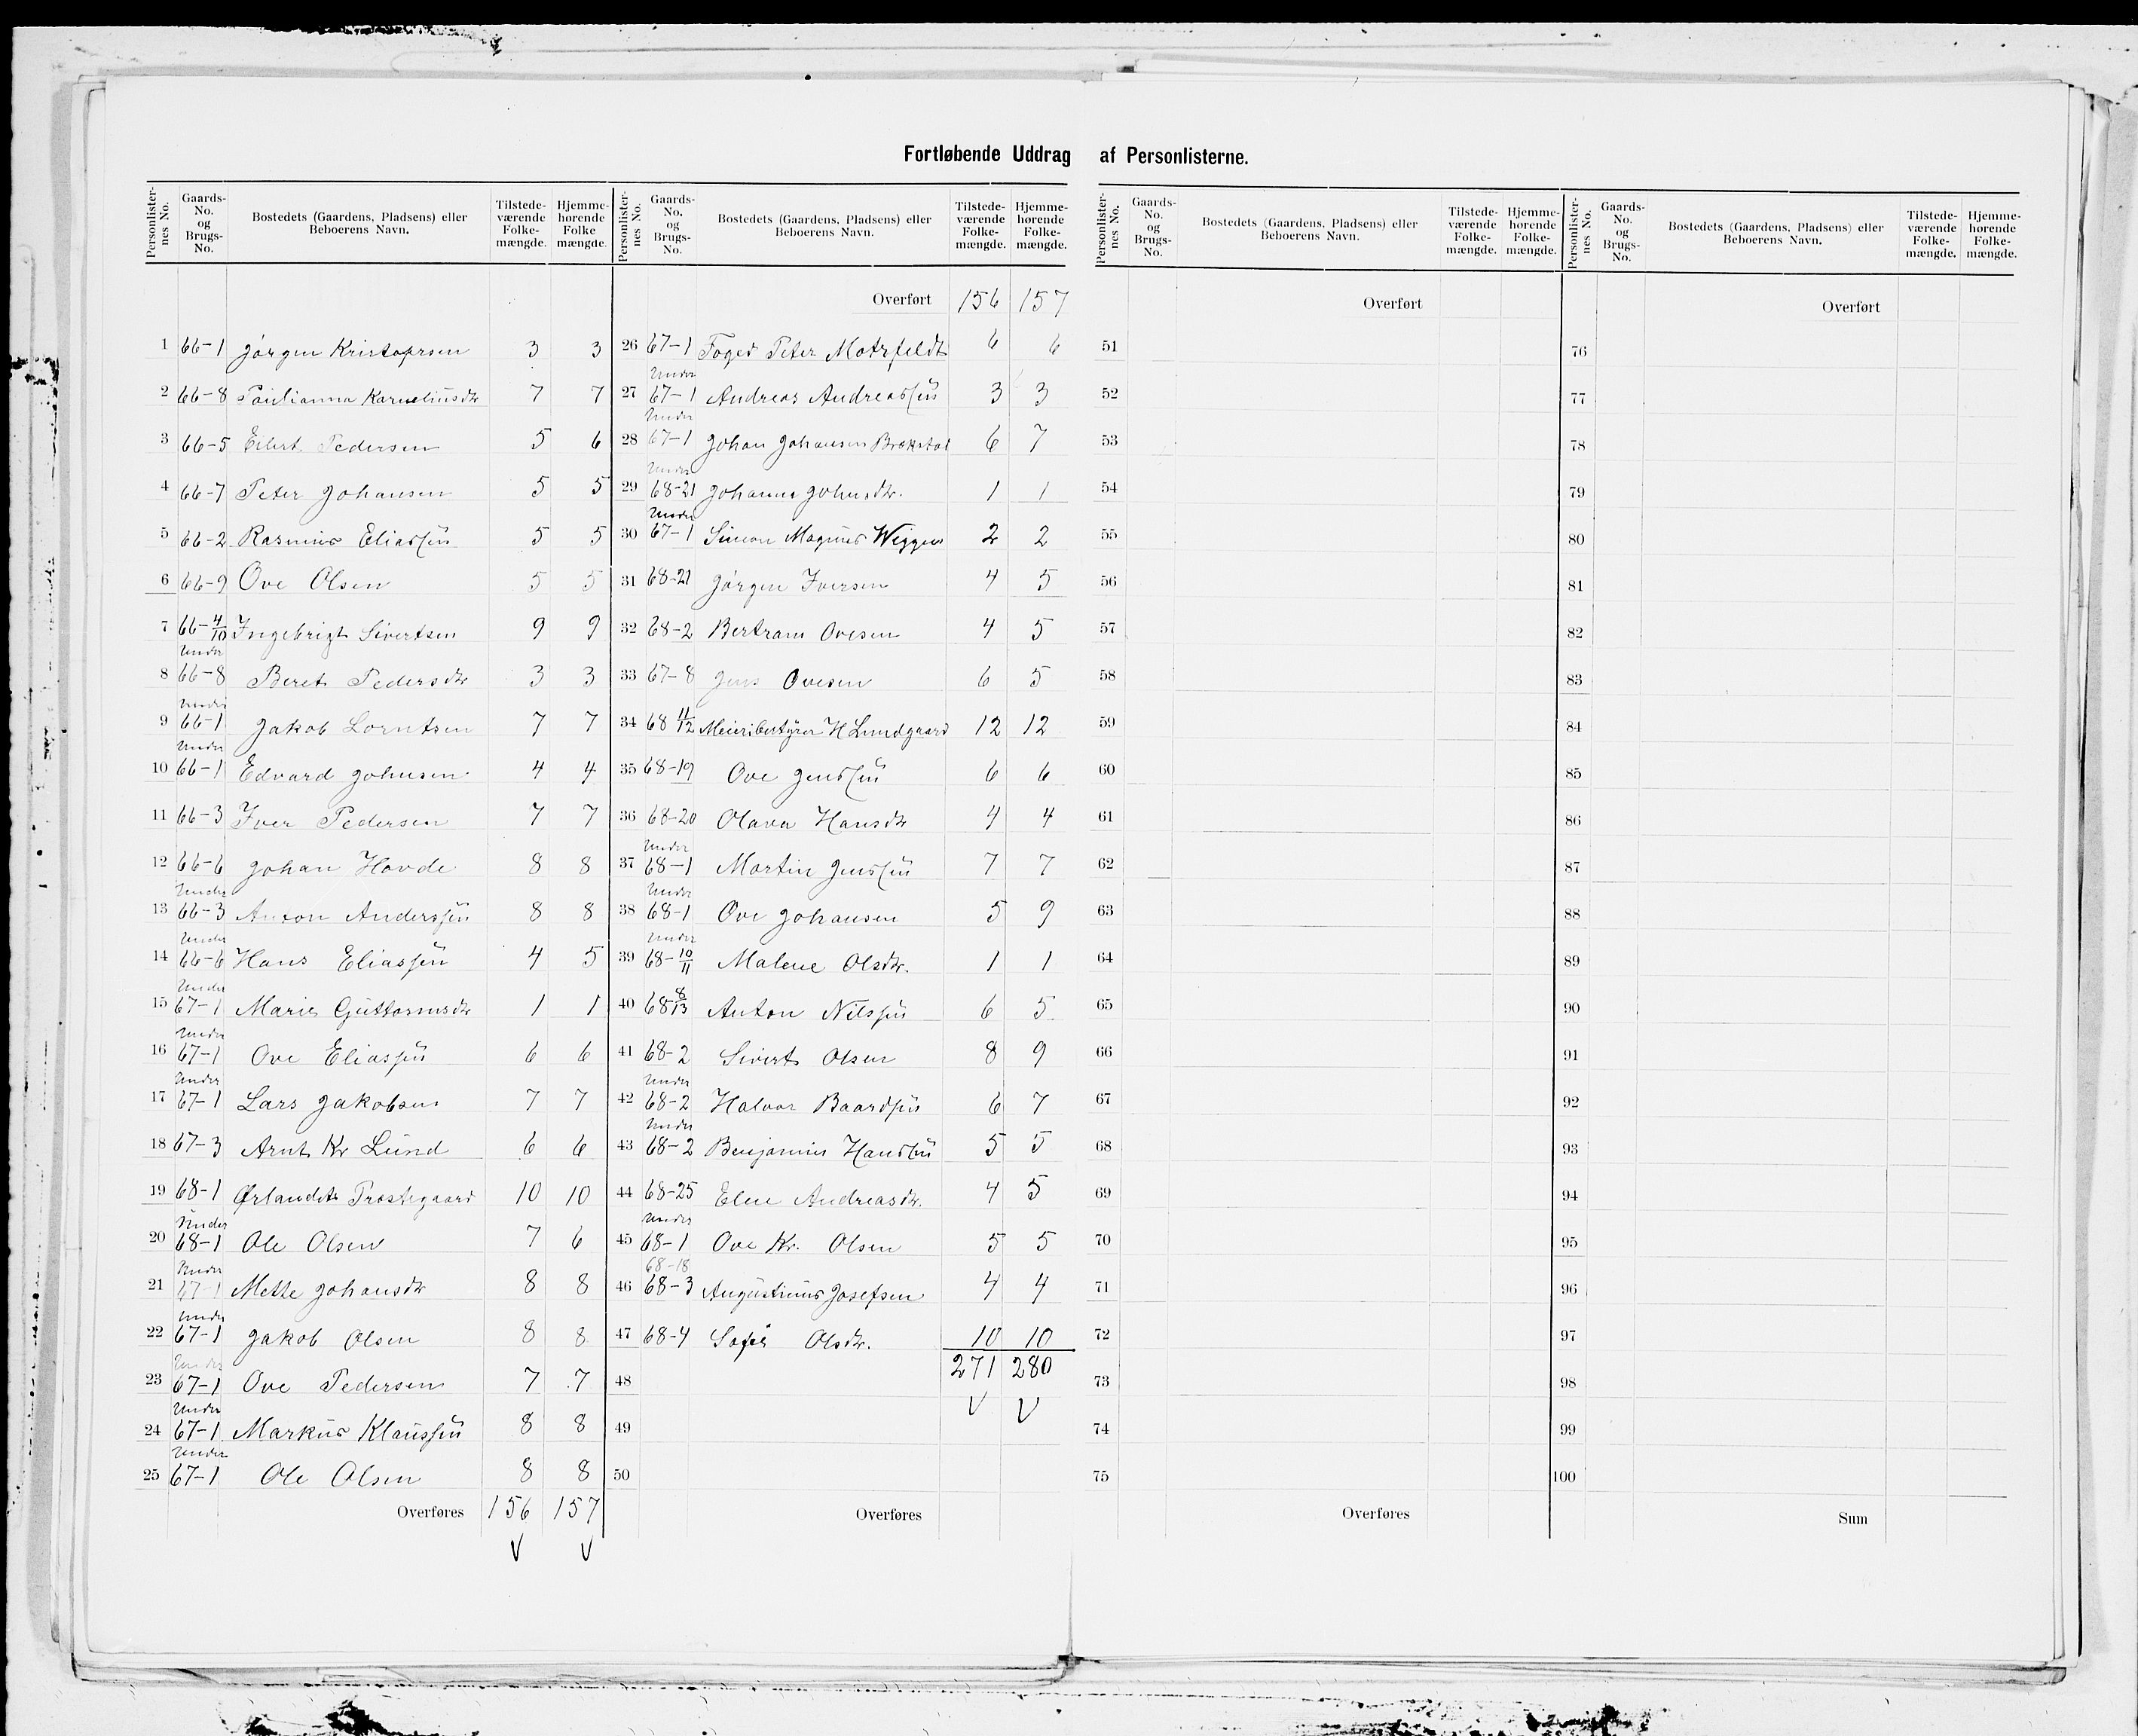 Fortløbende Uddrag af Personlisterne.
Personlisternes No. Gaards-No. og Brugs-No. Bostedets (Gaardens, Pladsens) eller Beboerens Navn. Tilstedeværende Folkemængde. Hjemmehørende Folkemængde.
1 66-1 Jørgen Kristofersen 3 3
2 66-8 Paulianna Korneliusdtr 7 7
3 66-5 Eilert Pedersen 5 6
4 66-7 Peter Johansen 5 5
5 66-2 Rasmus Eliassen 5 5
6 66-9 Ove Olsen 5 5
7 66-4/10 Ingebrigt Sivertsen 9 9
8 Under 66-8 Beret Pedersdtr 3 3
9 Under 66-1 Jakob Lorntsen 7 7
10 Under 66-1 Edvard Johnsen 4 4
11 66-3 Iver Pedersen 7 7
12 66-6 Johan Hovde 8 8
13 Under 66-3 Anton Anderssen 8 8
14 Under 66-6 Hans Eliassen 4 5
15 Under 67-1 Marie Guttormsdtr 1 1
16 Under 67-1 Ove Eliassen 6 6
17 Under 67-1 Lars Jakobsen 7 7
18 67-3 Arnt Kr Lund 6 6
19 68-1 Ørlandets Præstegaard 10 10
20 Under 68-1 Ole Olsen 7 6
21 Under 67-1 Mette Johansdtr 8 8
22 Under 67-1 Jakob Olsen 8 8
23 Under 67-1 Ove Pedersen 7 7
24 Under 67-1 Markus Klaussen 8 8
25 Under 67-1 Ole Olsen 8 8
Overføres 156 157
V V
Personlisternes No. Gaards-No. og Brugs-No. Bostedets (Gaardens, Pladsens) eller Beboerens Navn. Tilstedeværende Folkemængde. Hjemmehørende Folkemængde.
Overført 156 157
26 67-1 Foged Peter Motzfeldt 6 6
27 Under 67-1 Andreas Andreassen 3 3
28 Under 67-1 Johan Johansen Brækstad 6 7
29 Under 68-21 Johanna Johnsdtr. 1 1
30 Under 67-1 Simon Magnus Wiggen 2 2
31 68-21 Jørgen Iversen 4 5
32 68-2 Bertram Ovesen 4 5
33 67-8 Jens Ovesen 6 5
34 68 11/12 Meieribestyrer H Lundgaard 12 12
35 68-19 Ove Jenssen 6 6
36 68-20 Olava Hansdtr 4 4
37 Under 68-1 Martin Jenssen 7 7
38 Under 68-1 Ove Johansen 5 9
39 Under 68-10/11 Malene Olsdtr. 1 1
40 68 8/13 Anton Nilssen 6 5
41 68-2 Sivert Olsen 8 9
42 Under 68-2 Halvor Baardsen 6 7
43 Under 68-2 Benjamin Hanssen 5 5
44 68-25 Elen Andreasdtr. 4 5
45 Under 68-1 Ove Kr. Olsen 5 5
46 68-18 68-3 Augustinus Josefsen 4 4
47 68-4 Sofie Olsdtr. 10 10
48 271 280
V V
49
50
Overføres
Personlisternes No. Gaards-No. og Brugs-No. Bostedets (Gaardens, Pladsens) eller Beboerens Navn. Tilstedeværende Folkemængde. Hjemmehørende Folkemængde.
Overført
51
52
53
54
55
56
57
58
59
60
61
62
63
64
65
66
67
68
69
70
71
72
73
74
75
Overføres
Personlisternes No. Gaards-No. og Brugs-No. Bostedets (Gaardens, Pladsens) eller Beboerens Navn. Tilstedeværende Folkemængde. Hjemmehørende Folkemængde.
Overført
76
77
78
79
80
81
82
83
84
85
86
87
88
89
90
91
92
93
94
95
96
97
98
99
100
Sum